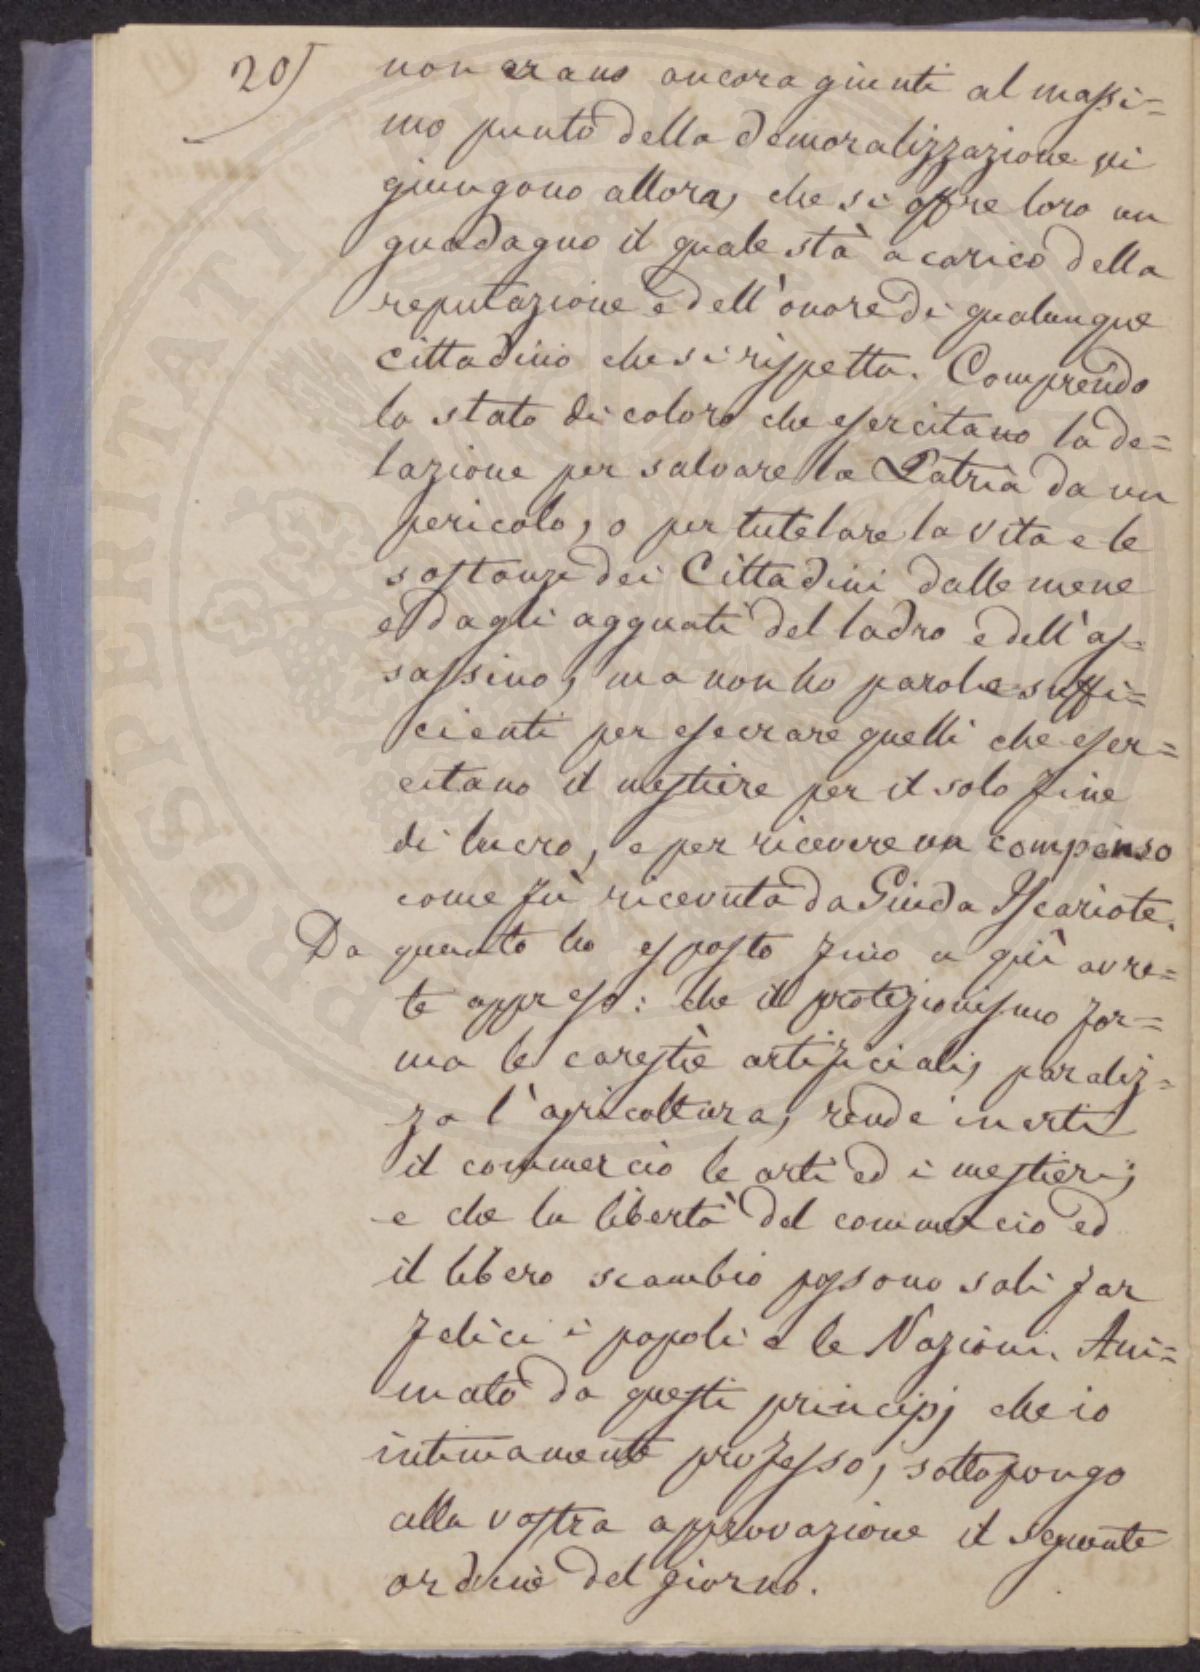 20)
non erano ancora giunti al massi=
mo punto della demoralizzazione vi
giungono allora, che si offre loro un
guadagno il quale stà a carico della
reputazione e dell'onore di qualunque
cittadino che si rispetta. Comprendo
lo stato di coloro che esercitano la de=
lazione per salvare la Patria da un
pericolo, o per tutelare la vita e le
sostanze dei Cittadini dalle mene
e dagli agguati del ladro e dell'as-
sassino, ma non ho parole suffi=
cienti per esecrare quelli che eser=
citano il mestiere per il solo fine
di lucro, e per ricevere un compenso
come fù ricevuto da Giuda Iscariote.
Da quanto ho esposto fino a quì avre=
te appreso: che il protezionismo for=
ma le carestie artificiali, paraliz=
za l'agricoltura, rende inerti
il commercio le arti ed i mestieri;
e che la libertà del commercio ed
il libero scambio possono soli far
felici i popoli e le Nazioni. Ani=
mato da questi principj che io
intimamente professo, sottopongo
alla vostra approvazione il seguente
ordine del giorno.
PROSPERITATI